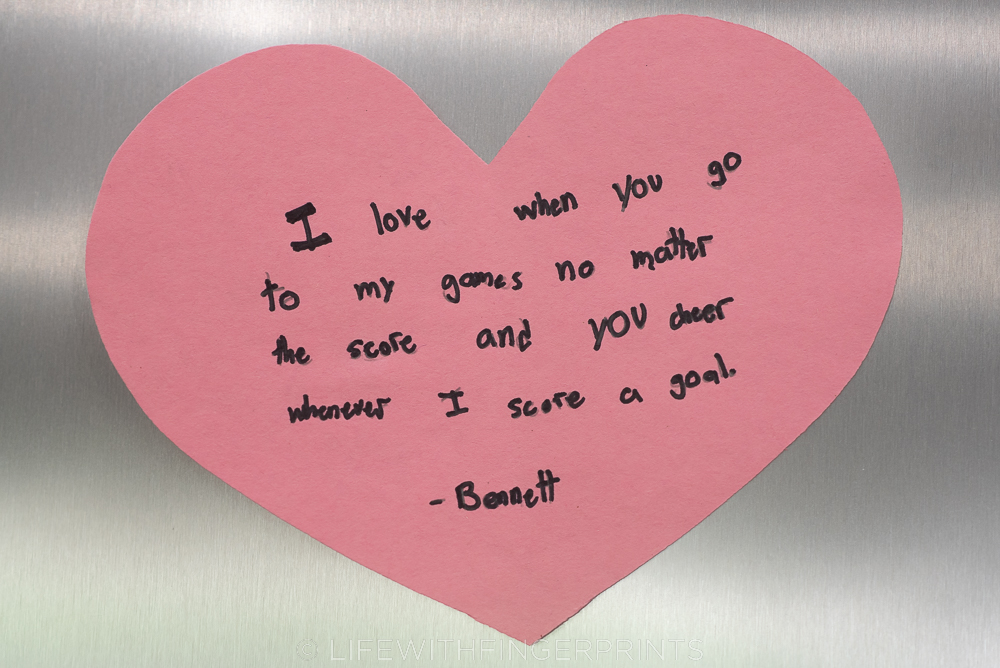 I love when you go
to my games no matter
the score and you cheer
whenever I score a goal.
- Bennett
© LIFEWITHFINGERPRINTS